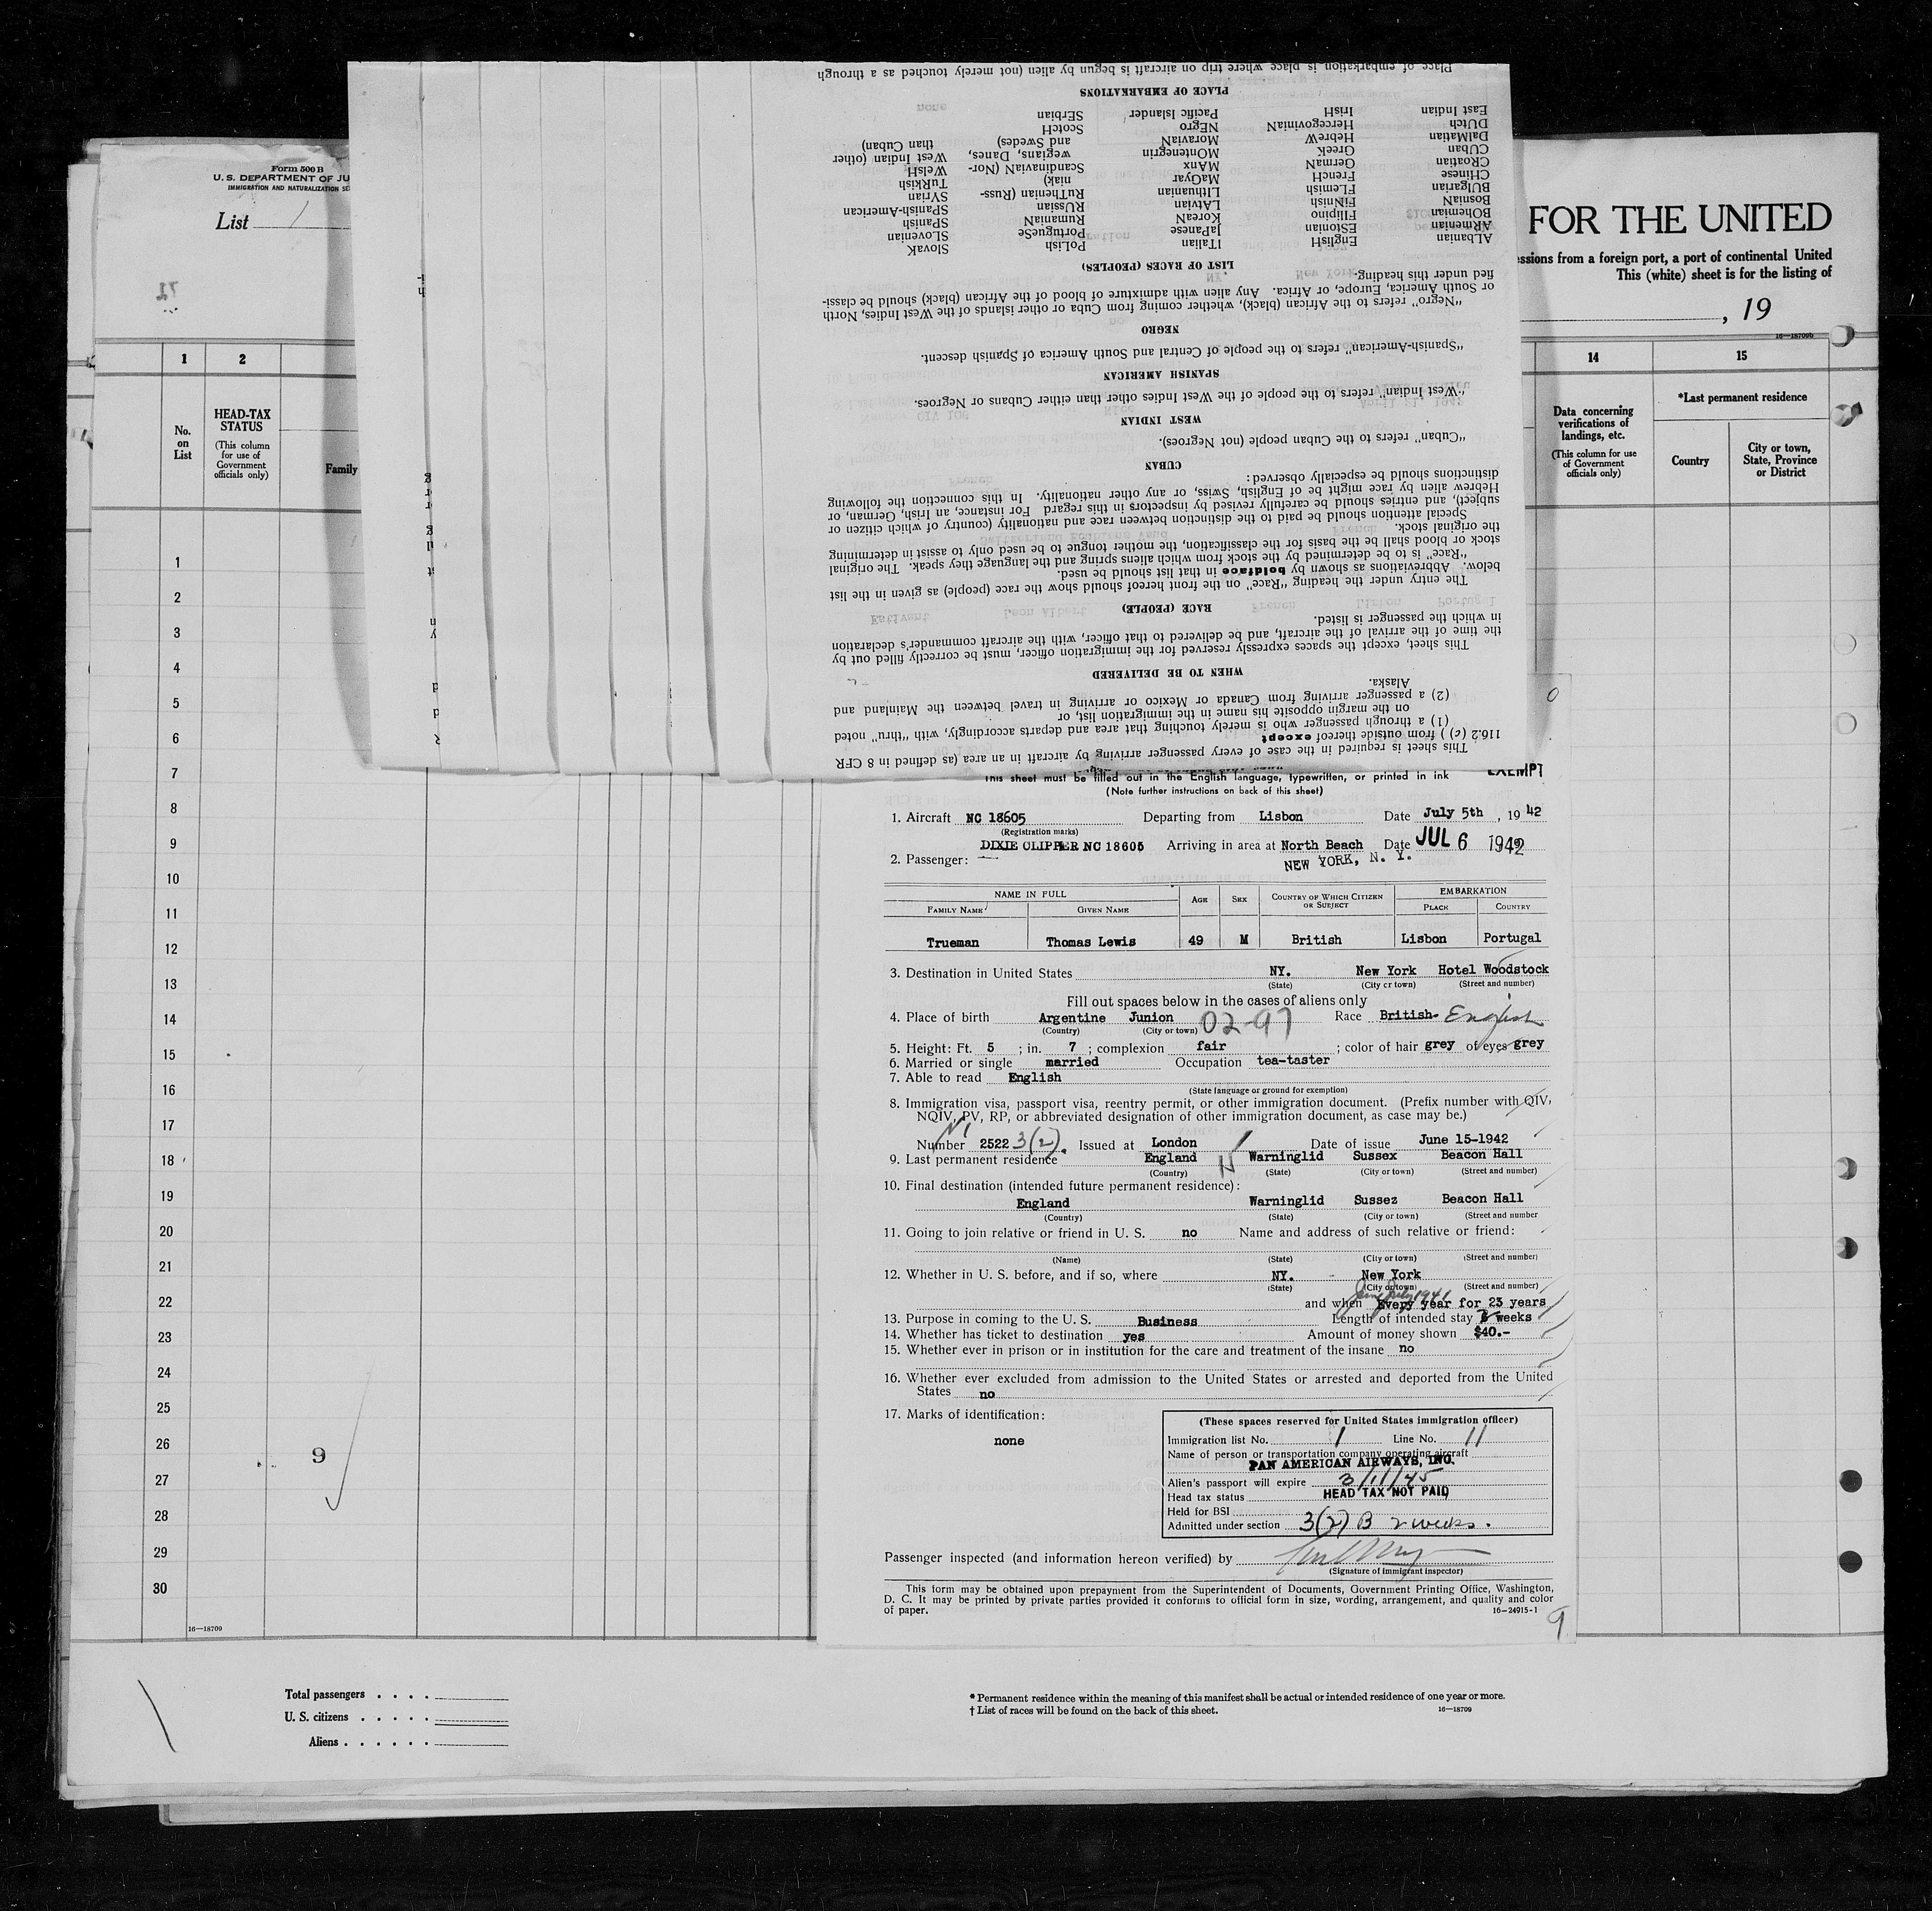 Form 500 B
U. S. DEPARTMENT OF JU
IMMIGRATION AND NATURALIZATION SE
List 1
FOR THE UNITED
ssions from a foreign port, a port of continental United
This (white) sheet is for the listing of
, 19
16—18709b
1 2 14 15
No. on List
HEAD-TAX STATUS
(This column for use of Government officials only)
Family
Data concerning verifications of landings, etc.
(This column for use of Government officials only)
*Last permanent residence
Country
City or town, State, Province or District
1
2
3
4
5
6
7
8
9
10
11
12
13
14
15
16
17
18
19
20
21
22
23
24
25
26
27
28
29
30
9
16—18709
Total passengers . . . .
U. S. citizens . . . . .
Aliens . . . . . .
* Permanent residence within the meaning of this manifest shall be actual or intended residence of one year or more.
† List of races will be found on the back of this sheet.
16—18709
This sheet is required in the case of every passenger arriving by aircraft in an area (as defined in 8 CFR
116.2 (c) ) from outside thereof except
(1) a through passenger who is merely touching that area and departs accordingly, with "thru" noted
on the margin opposite his name in the immigration list, or
(2) a passenger arriving from Canada or Mexico or arriving in travel between the Mainland and
Alaska.
WHEN TO BE DELIVERED
This sheet, except the spaces expressly reserved for the immigration officer, must be correctly filled out by
the time of the arrival of the aircraft, and be delivered to that officer, with the aircraft commander's declaration
in which the passenger is listed.
RACE (PEOPLE)
The entry under the heading "Race" on the front hereof should show the race (people) as given in the list
below. Abbreviations as shown by boldface in that list should be used.
"Race" is to be determined by the stock from which aliens spring and the language they speak. The original
stock or blood shall be the basis for the classification, the mother tongue to be used only to assist in determining
the original stock.
Special attention should be paid to the distinction between race and nationality (country of which citizen or
subject), and entries should be carefully revised by inspectors in this regard For instance, an Irish, German, or
Hebrew alien by race might be of English, Swiss, or any other nationality. In this connection the following
distinctions should be especially observed:
CUBAN
"Cuban" refers to the Cuban people (not Negroes).
WEST INDIAN
"West Indian" refers to the people of the West Indies other than either Cubans or Negroes.
SPANISH AMERICAN
"Spanish-American" refers to the people of Central and South America of Spanish descent.
NEGRO
"Negro" refers to the African (black), whether coming from Cuba or other islands of the West Indies, North
or South America, Europe, or Africa. Any alien with admixture of blood of the African (black) should be classi-
fied under this heading.
LIST OF RACES (PEOPLES)
ALbanian EngliSH ITalian PoLish SlovaK
ARmenian EStonian JaPanese PortugueSe SLOvenian
BOhemian FIlipino KoreaN RumaniaN SPanish
BosniaN FiNnish LAtvian RUssian SPanish-American
BUlgarian FLemish LIthuanian RuThenian (Russ- SYrian
CHinese FrencH MaGyar niak) TuRkish
CRoatian GermaN MAnx ScandinaviaN (Nor- WelsH
CUban GreeK MOntenegrin wegians, Danes, West Indian (other
DalMatian HebreW MoraviaN and Swedes) than Cuban)
DUtch HercegoviniaN NEgro ScotcH
East Indian IrisH Pacific Islander SErbian
PLACE OF EMBARKATIONS
Place of embarkation is place where trip on aircraft is begun by alien (not merely touched as a through
EXEMPT
This sheet must be filled out in the English language, typewritten, or printed in ink
(Note further instructions on back of this sheet)
1. Aircraft NC 18605 Departing from Lisbon Date July 5th , 19 42
(Registration marks)
DIXIE CLIPPER NC 18605 Arriving in area at North Beach Date JUL 6 1942
2. Passenger: NEW YORK, N. Y.
NAME IN FULL AGE SEX COUNTRY OF WHICH CITIZEN OR SUBJECT EMBARKATION
FAMILY NAME GIVEN NAME PLACE COUNTRY
Trueman Thomas Lewis 49 M British Lisbon Portugal
3. Destination in United States NY. New York Hotel Woodstock
(State) (City or town) (Street and number)
Fill out spaces below in the cases of aliens only
4. Place of birth Argentine Junion 02-97 Race British- English
(Country) (City or town)
5. Height: Ft. 5 ; in. 7 ; complexion fair ; color of hair grey of eyes grey
6. Married or single married Occupation tea-taster
7. Able to read English
(State language or ground for exemption)
8. Immigration visa, passport visa, reentry permit, or other immigration document. (Prefix number with QIV,
NQIV, PV, RP, or abbreviated designation of other immigration document, as case may be.)
Number 2522 3(2). Issued at London Date of issue June 15-1942
9. Last permanent residence England Warninglid Sussex Beacon Hall
(Country) (State) (City or town) (Street and number)
10. Final destination (intended future permanent residence):
England Warninglid Sussez Beacon Hall
(Country) (State) (City or town) (Street and number
11. Going to join relative or friend in U. S. no Name and address of such relative or friend:
(Name) (State) (City or town) (Street and number)
12. Whether in U. S. before, and if so, where NY. New York
(State) (City or town) (Street and number)
June July 1941
and when Every year for 23 years
13. Purpose in coming to the U. S. Business Length of intended stay weeks
14. Whether has ticket to destination yes Amount of money shown $40.-
15. Whether ever in prison or in institution for the care and treatment of the insane no
16. Whether ever excluded from admission to the United States or arrested and deported from the United
States no
17. Marks of identification:
none
(These spaces reserved for United States immigration officer)
Immigration list No. 1 Line No. 11
Name of person or transportation company operating aircraft
PAN AMERICAN AIRWAYS, INC.
Alien's passport will expire 3/11/45
Head tax status HEAD TAX NOT PAID
Held for BSI
Admitted under section 3(2) B 2 weeks.
Passenger inspected (and information hereon verified) by
(Signature of immigrant inspector)
This form may be obtained upon prepayment from the Superintendent of Documents, Government Printing Office, Washington,
D. C. It may be printed by private parties provided it conforms to official form in size, wording, arrangement, and quality and color
of paper. 16—24915-1
9